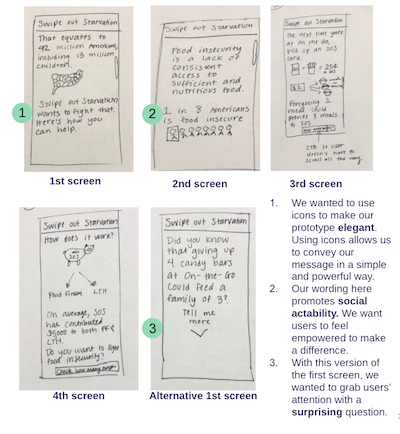 Swipe out Starvation
That equates to
42 million Americans,
including 13 million
children.
1
Swipe out Starvation
wants to fight that.
Here's how you
can help.
1st screen
Swipe out Starvation
Food insecurity
is a lack of
consistent
access to
sufficient and
nutritious food.
2
1 in 8 Americans
is food insecure
2nd screen
Swipe out Starvation
The next time you're
at on the go,
pick up an SOS
card.
= 25¢
in SOS
Foregoing 1
meal could
provide 3 meals
to
CTA so user
doesn't have to
scroll all the way
3rd screen
Swipe out Starvation
How does it work?
SOS
Food Finders LTH
On average, SOS
has contributed
$5000 to both FF &
LTH.
Do you want to fight
food insecurity?
Check how many swipes
4th screen
Swipe out Starvation
Did you know
that giving up
4 candy bars
at On-the-Go
could feed a
family of 3?
3
Tell me
more
Alternative 1st screen
1. We wanted to use
icons to make our
prototype elegant.
Using icons allows us
to convey our
message in a simple
and powerful way.
2. Our wording here
promotes social
actability. We want
users to feel
empowered to make
a difference.
3. With this version of
the first screen, we
wanted to grab users'
attention with a
surprising question.